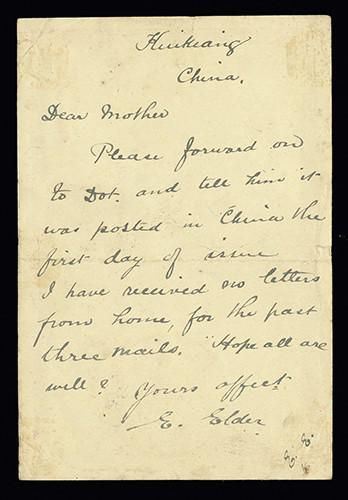 Kiukiang
China.
Dear Mother
Please forward on
to Dot. and tell him it
was posted in China the
first day of issue
I have received no letters
from home, for the past
three mails. Hope all are
well? Yours affect
E. Elder